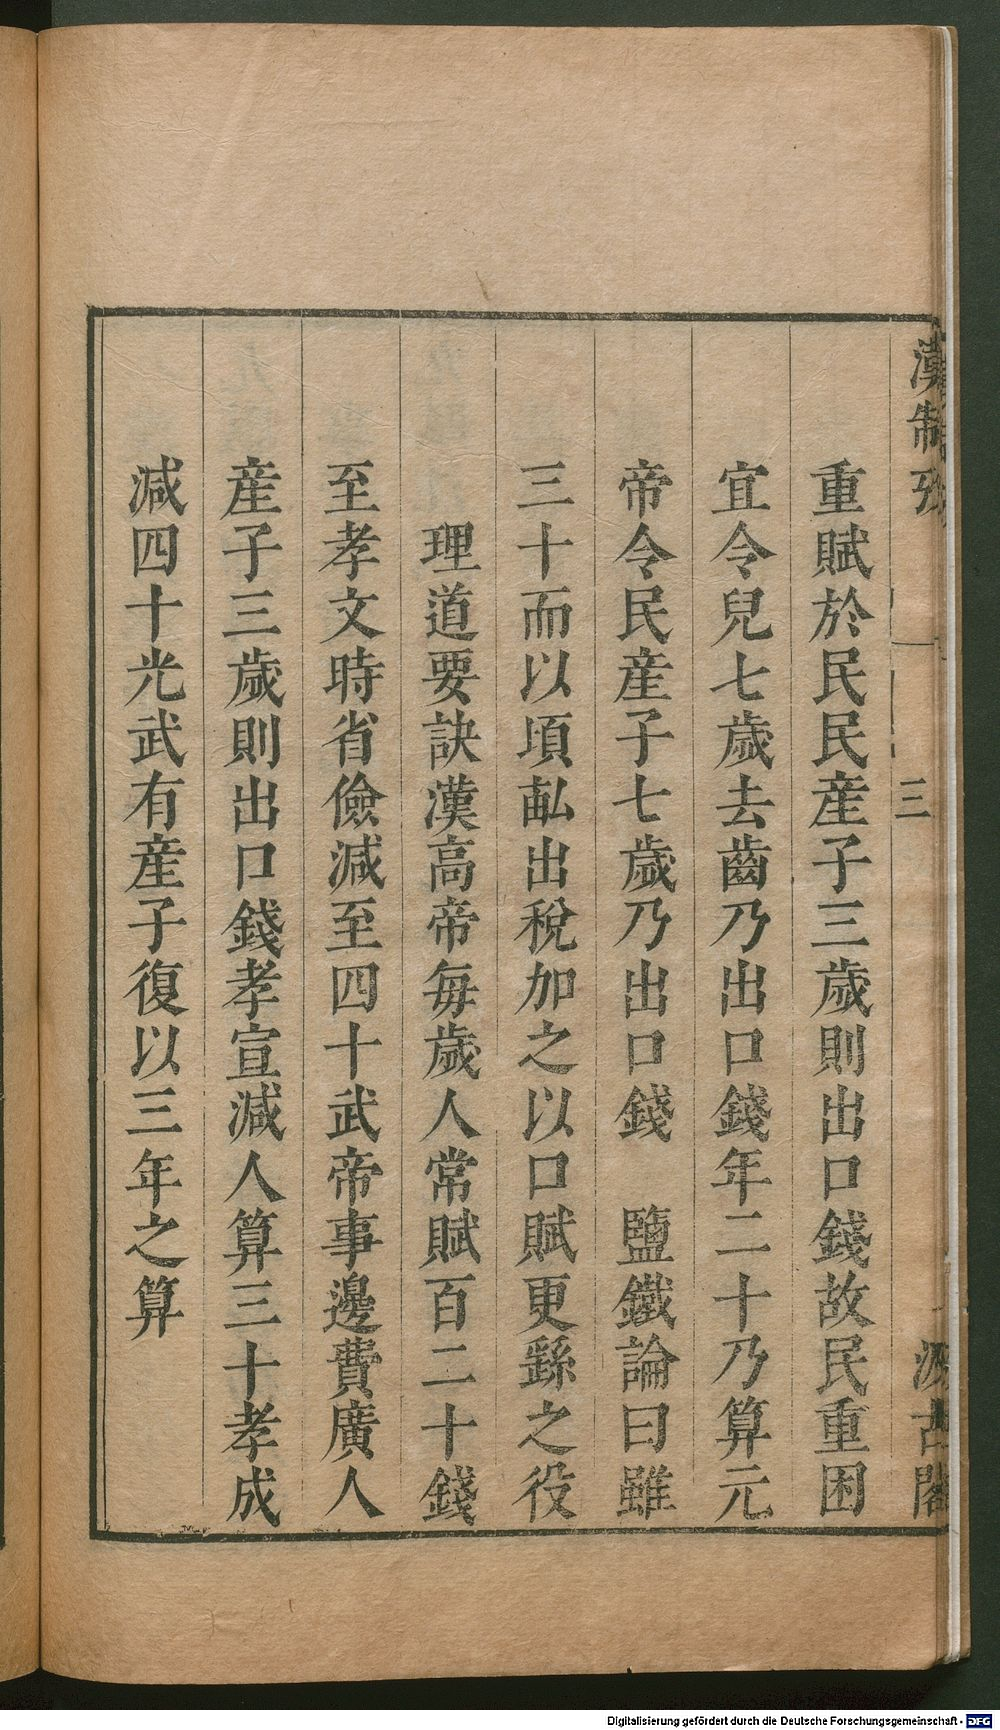 漢制攷
三
汲古閣
重賦於民民産子三歲則出口錢故民重困
宜令兒七歲去齒乃出口錢年二十乃算元
帝令民産子七歲乃出口錢　鹽鐵論曰雖
三十而以頃畝出稅加之以口賦更繇之役
理道要訣漢高帝毎歲人常賦百二十錢
至孝文時省儉減至四十武帝事邊費廣人
産子三歲則出口錢孝宣減人算三十孝成
減四十光武有産子復以三年之算
Digitalisierung gefördert durch die Deutsche Forschungsgemeinschaft - DFG